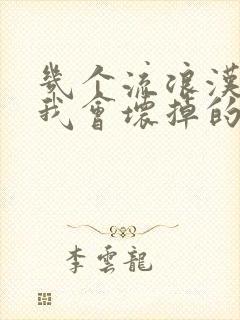 幾个流浪漢
我會壞掉的
李雲龍